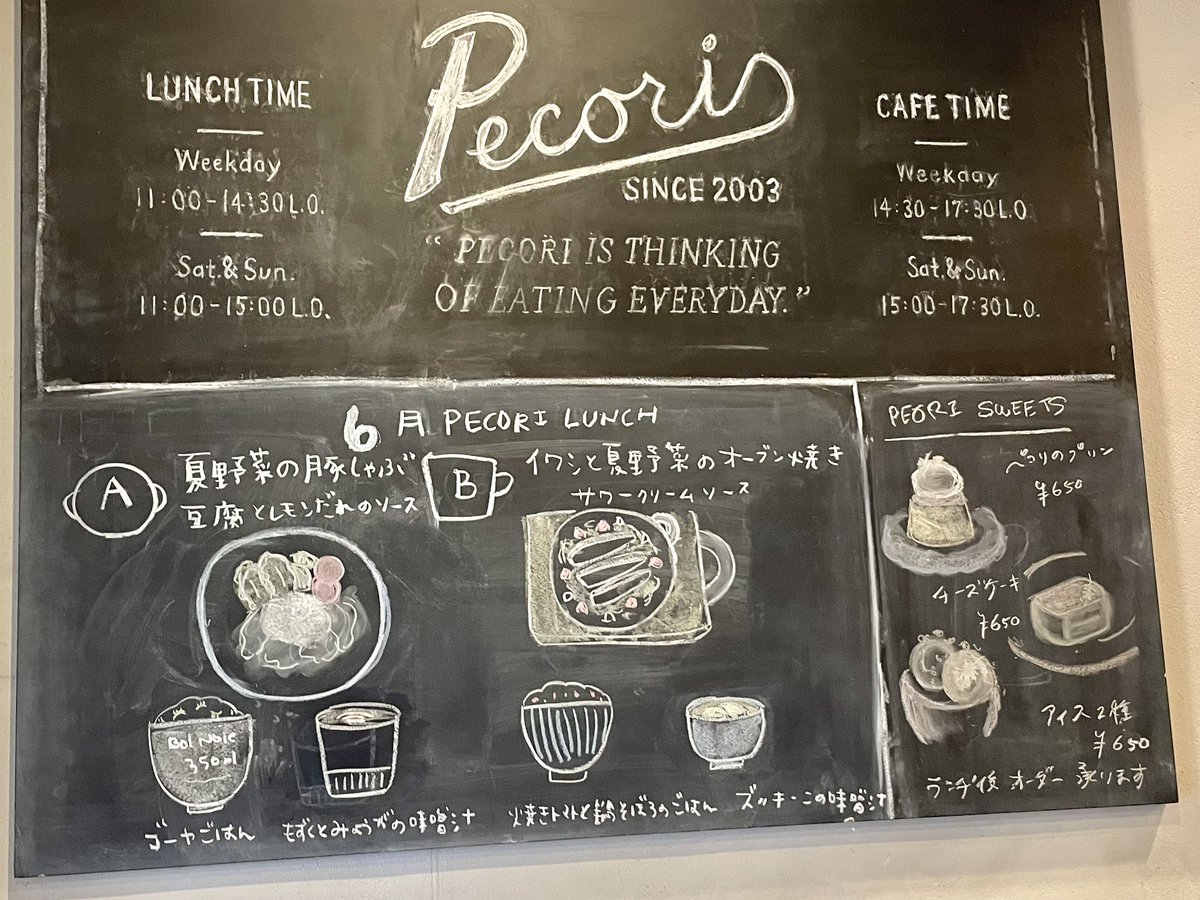 LUNCH TIME
Weekday
11:00-14:30 L.O.
Sat.&Sun.
11:00-15:00 L.O.
Pecori
SINCE 2003
“PECORI IS THINKING
OF EATING EVERYDAY.”
CAFE TIME
Weekday
14:30-17:30 L.O
Sat.&Sun.
15:00-17:30 L.O.
6月 PECORI LUNCH
A
夏野菜の豚しゃぶ
豆腐とレモンだれのソース
BOL NOIE
350ml
ゴーヤごはん
もずくとみょうがの味噌汁
B
イワシと夏野菜のオーブン焼き
サワークリームソース
焼きトマトと鶏そぼろのごはん
ズッキーニの味噌汁
PEORI SWEETS
ぺこりのプリン
¥650
チーズケーキ
¥650
アイス2種
¥650
ランチ後オーダー承ります